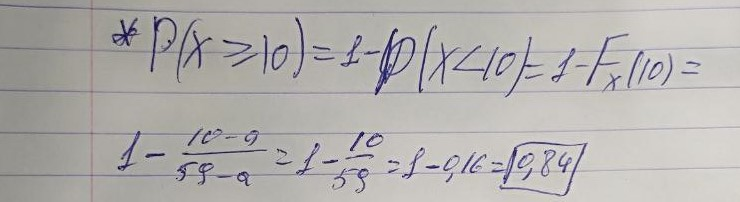 * P(X ≥ 10) = 1 - P(X < 10) = 1 - Fₓ(10) =
1 - (10-a)/(59-a) = 1 - 10/59 = 1 - 0,16 = 0,84